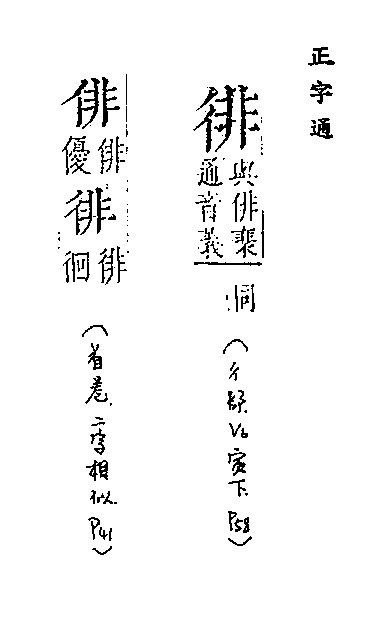 正字通
徘
與俳裴
通音義
同
(彳部.V6寅下.P58)
俳
俳優
徘
徘徊
(首卷.二字相似.P41)